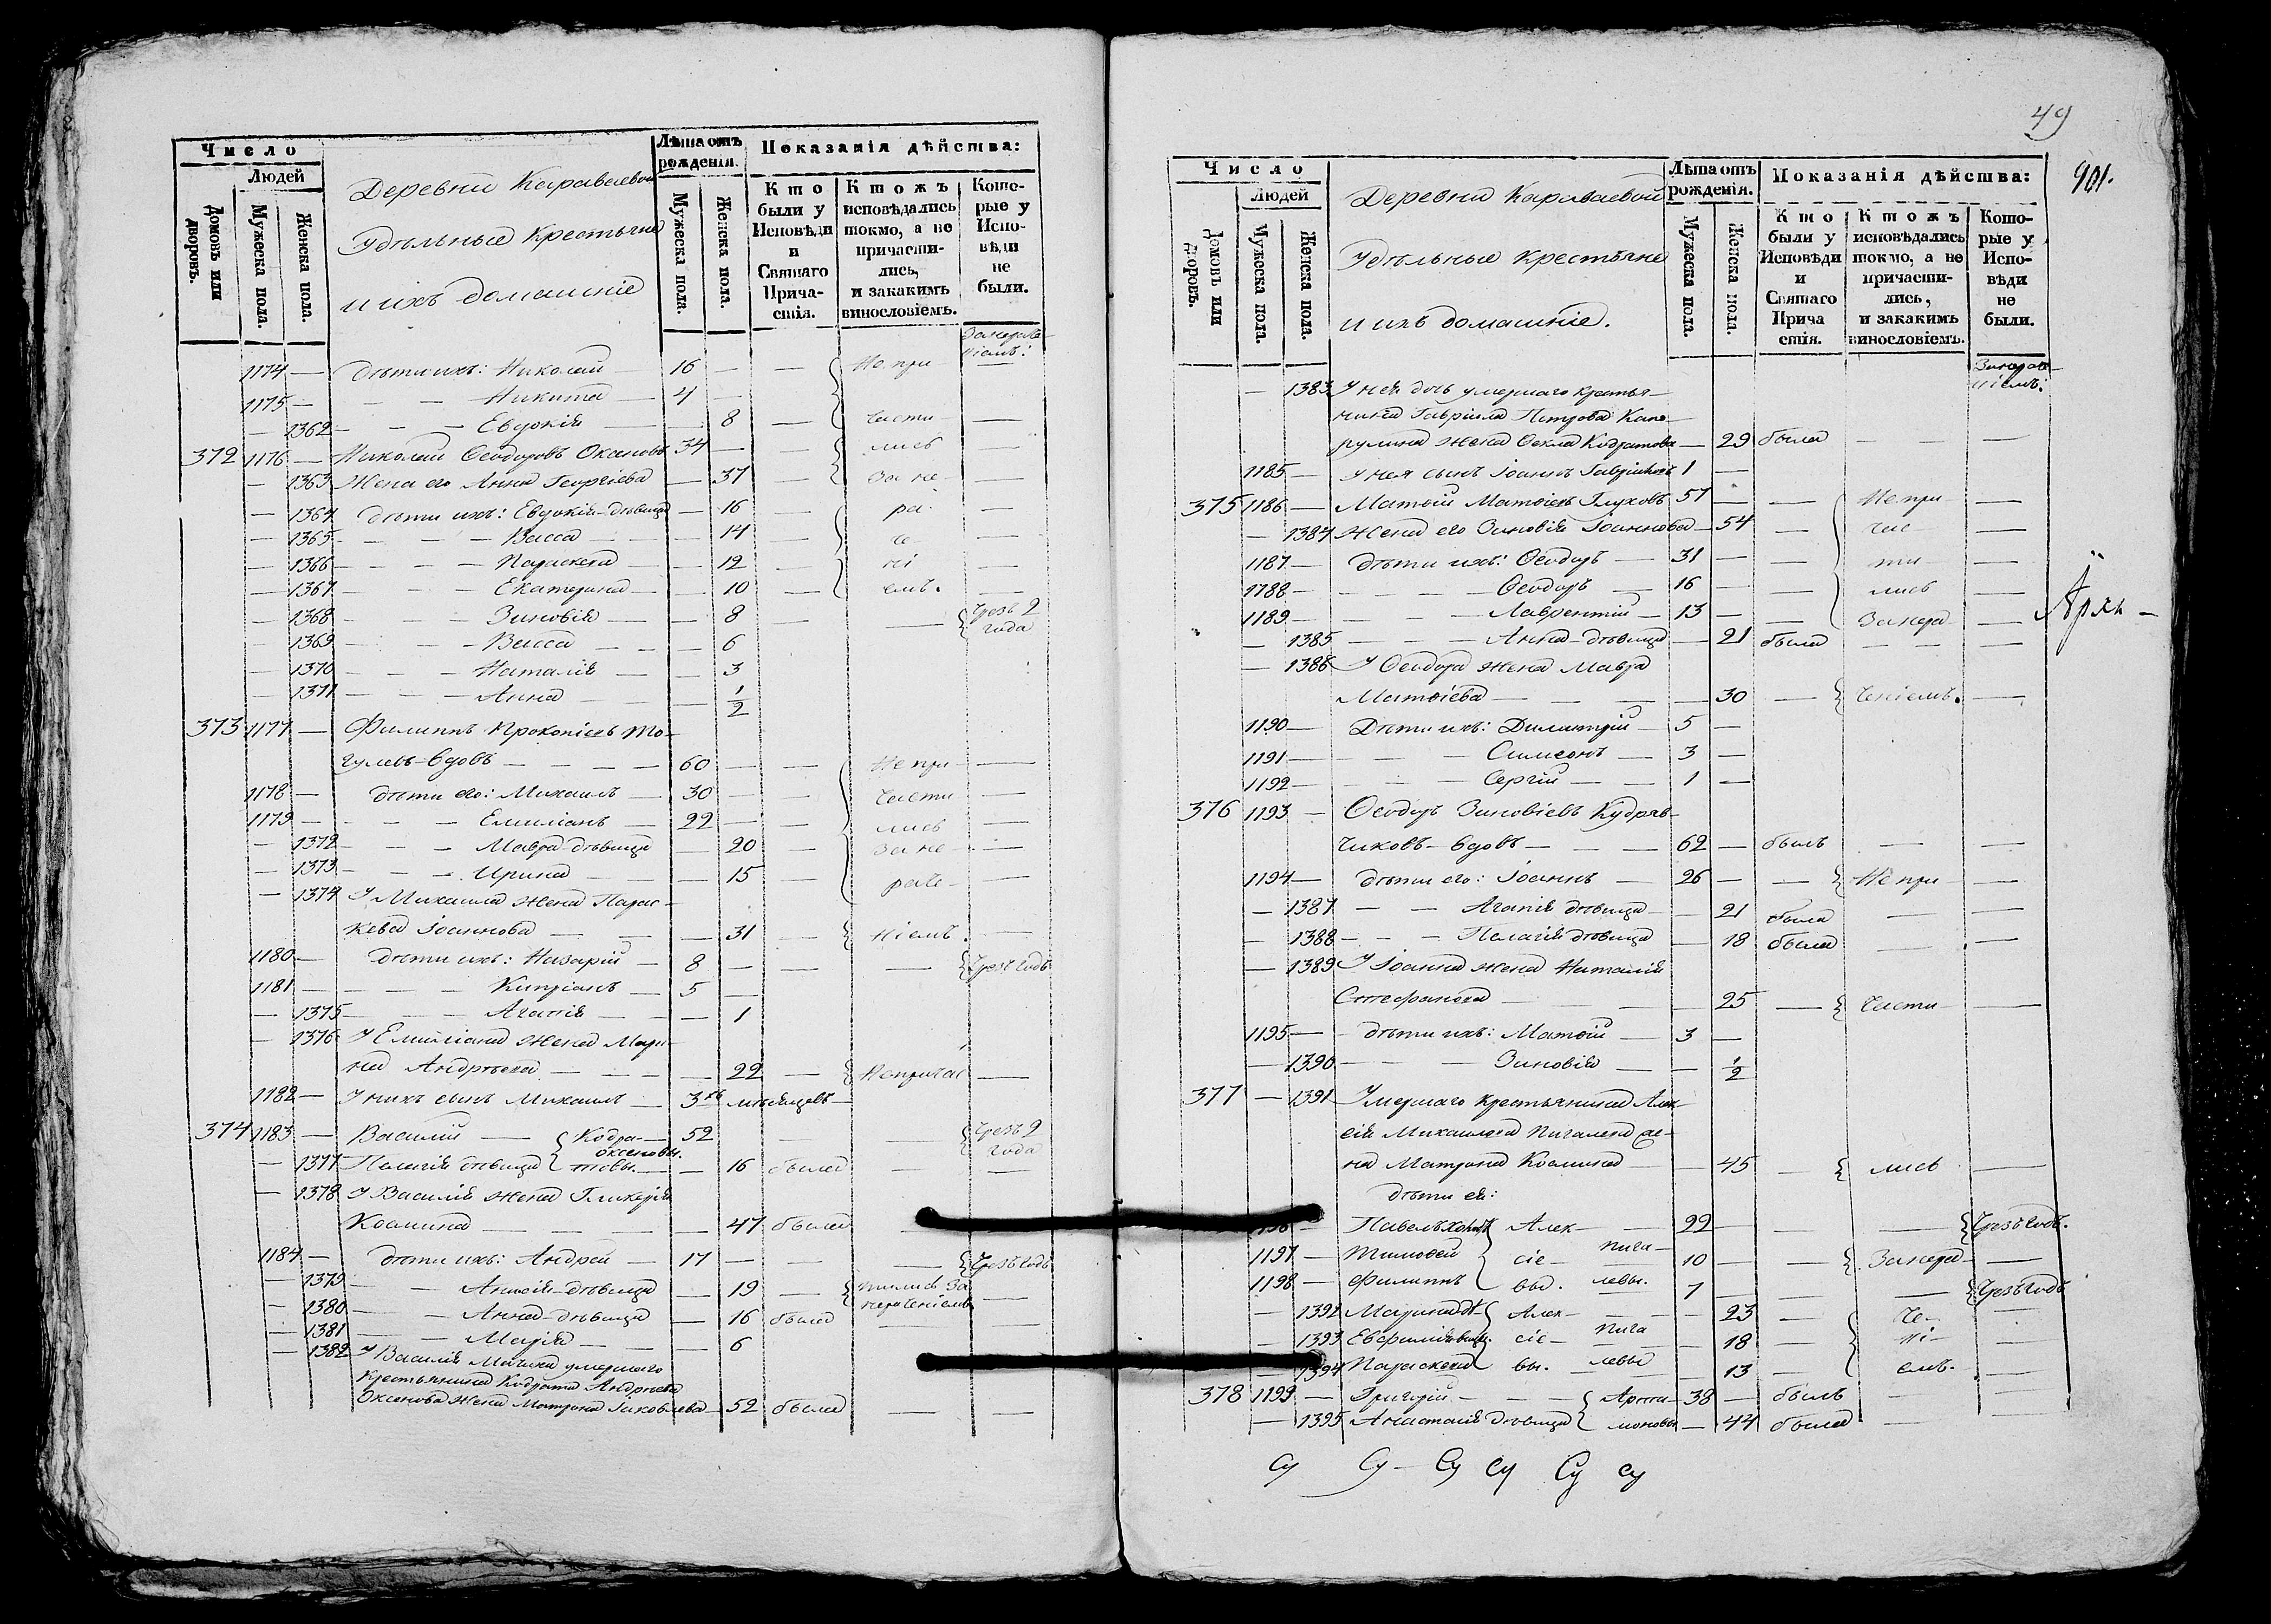 Число
Людей
Домовъ или дворовъ.
Мужеска пола.
Женска пола.
Деревни Караваевой
Удѣльные Крестьяне
и ихъ домашніе
Лѣта отъ рожденія.
Мужеска пола.
Женска пола.
Показанія дѣйства:
Кто были у Исповѣди и Святаго Причастія.
Ктожъ исповѣдались токмо, а не причастились, и закакимъ винословіемъ.
Которые у Исповѣди не были.
1174 — дѣти ихъ: Николай — 16 — — Не при —
1175 — — — Никита — 4 —
— 1362 — — — Евдокія — — 8 — части —
372 1176 — Николай Ѳеодоровъ Оксановъ 34 — — лись —
— 1363 Жена его Анна Георгіева — 37 — За не —
— 1364 дѣти ихъ: Евдокія дѣвица — 16 — ра —
— 1365 — — — Васса — — 14 — че —
— 1366 — — — Параскева — — 12 — ні —
— 1367 — — — Екатерина — — 10 — емъ. —
— 1368 — — — Зиновія — — 8 — — чрезъ 2 года
— 1369 — — — Васса — — 6
— 1370 — — — Наталія — — 3
— 1371 — — — Анна — — 1/2
373 1177 — Филиппъ Прокопіевъ Мо-
гулевъ вдовъ — — — 60 — — Не при —
1178 — дѣти его: Михаилъ — 30 — — части —
1179 — — — Емиліанъ — 22 — — лись —
— 1372 — — Мавра дѣвица — 20 — За не —
— 1373 — — Ирина — — 15 — раче —
— 1374 У Михаила жена Парас-
кева Іоаннова — — — 31 — ніемъ. —
1180 — дѣти ихъ: Назарій — 8 — — — чрезъ годъ
1181 — — — — Кипріанъ — 5 —
— 1375 — — — Агапія — — 1
— 1376 У Емиліана жена Мари-
на Андреева — — — 22 — Не причас —
1182 — У нихъ сынъ Михаилъ — 3хъ мѣсяцевъ —
374 1183 — Василій — Кодра- — 52 — — чрезъ 2 года
— 1377 Пелагія дѣвица товы. Оксеновы. — 16 была — —
— 1378 У Василія жена Гликерія
Косьмина — — — 47 была — —
1184 — дѣти ихъ: Андрей — 17 — — — чрезъ годъ
— 1379 — — Анисія дѣвица — 19 — тились За нераченіемъ —
— 1380 — — Анна дѣвица — 16 была — —
— 1381 — — Марія — — 6
— 1382 У Василія Мачиха умершаго
Крестьянина Кодрата Андреева
Оксенова жена Матрона Іаковлева — 52 была — —
49
901.
Число
Людей
Домовъ или дворовъ.
Мужеска пола.
Женска пола.
Деревни Караваевой
Удѣльные Крестьяне
и ихъ домашніе.
Лѣта отъ рожденія.
Мужеска пола.
Женска пола.
Показанія дѣйства:
Кто были у Исповѣди и Святаго Причастія.
Ктожъ исповѣдались токмо, а не причастились, и закакимъ винословіемъ.
Которые у Исповѣди не были.
— 1383 У ней дочь умершаго крестья-
нина Гавріила Петрова
жена Ѳекла Кодратова — 29 была — —
1185 — У нея сынъ Іоаннъ Гавріиловъ 1 —
375 1186 — Матѳій Матѳіевъ Глуховъ 57 — — Не при —
— 1384 Жена его Зиновія Іоаннова — 54 — час —
1187 — дѣти ихъ: Ѳеодоръ — 31 — — ти —
1788 — — — Ѳеодоръ — 16 — — лись —
1189 — — — Лаврентій — 13 — — За нера —
— 1385 — — — Анна дѣвица — 21 была — —
— 1386 У Ѳеодора жена Мавра
Матѳіева — — — 30 — ченіемъ. —
1190 — Дѣти ихъ: Димитрій — 5 —
1191 — — — Симеонъ — 3 —
1192 — — — Сергій — 1 —
376 1193 — Ѳеодоръ Зиновіевъ Кудряв-
чиковъ вдовъ — — — 62 — былъ — —
1194 — дѣти его: Іоаннъ — 26 — — Не при —
— 1387 — — Агапія дѣвица — 21 была — —
— 1388 — — Пелагія дѣвица — 18 была — —
— 1389 У Іоанна жена Наталія
Стефанова — — 25 — части —
1195 — дѣти ихъ: Матѳій — 3 —
— 1390 — — — Зиновія — — 1/2
377 — 1391 Умершаго крестьянина Алек-
сія Михаилова Пигалева же-
на Матрона Косьмина — — 45 — лись —
дѣти ея:
1196 — Павелъ холостъ Алек- — 22 — — — чрезъ годъ.
1197 — Тимоѳей сіе- Пига- 10 — — За нера —
1198 — Филиппъ вы. левы. 7 — — — чрезъ годъ
— 1392 Марина дѣ- Алек- — 23 — че- —
— 1393 Евфимія дѣвиц. сіе- Пига — 18 — ні- —
— 1394 Параскева вы. левы — 13 — емъ. —
378 1199 — Григорій — — Арта- — 38 — былъ — —
— 1395 Анастасія дѣвица моновы — 44 была — —